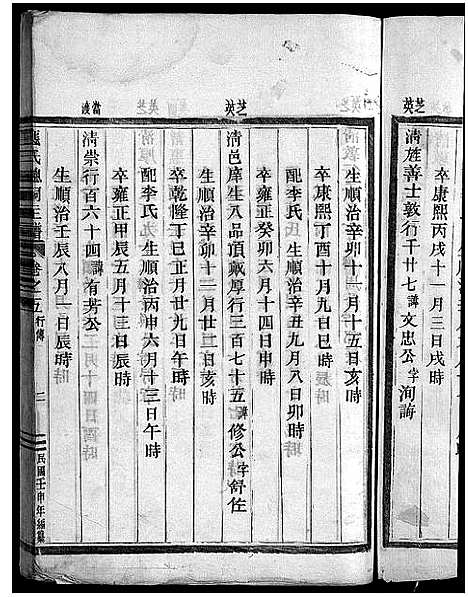 芝英
卒康熙丙戌十一月三日戌時
清旌善士敦行千廿七諱文忠公字洵誨
芝英
當渡
生順治辛卯十一月十五日亥時
卒康熙丁酉十月九日巳時
配李氏生順治辛丑九月八日卯時
卒雍正癸卯六月十四日申時
清邑庠生八品頂戴厚行三百七十五諱修公字舒佐
生順治辛卯十二月廿二日亥時
卒乾隆丁巳正月廿九日午時
配李氏生順治丙申六月十三日午時
卒雍正甲辰五月十三日辰時
清崇行百六十四諱有芳公
生順治壬辰八月一日辰時
氏總祠主譜卷之五行傳
民國壬申年編纂